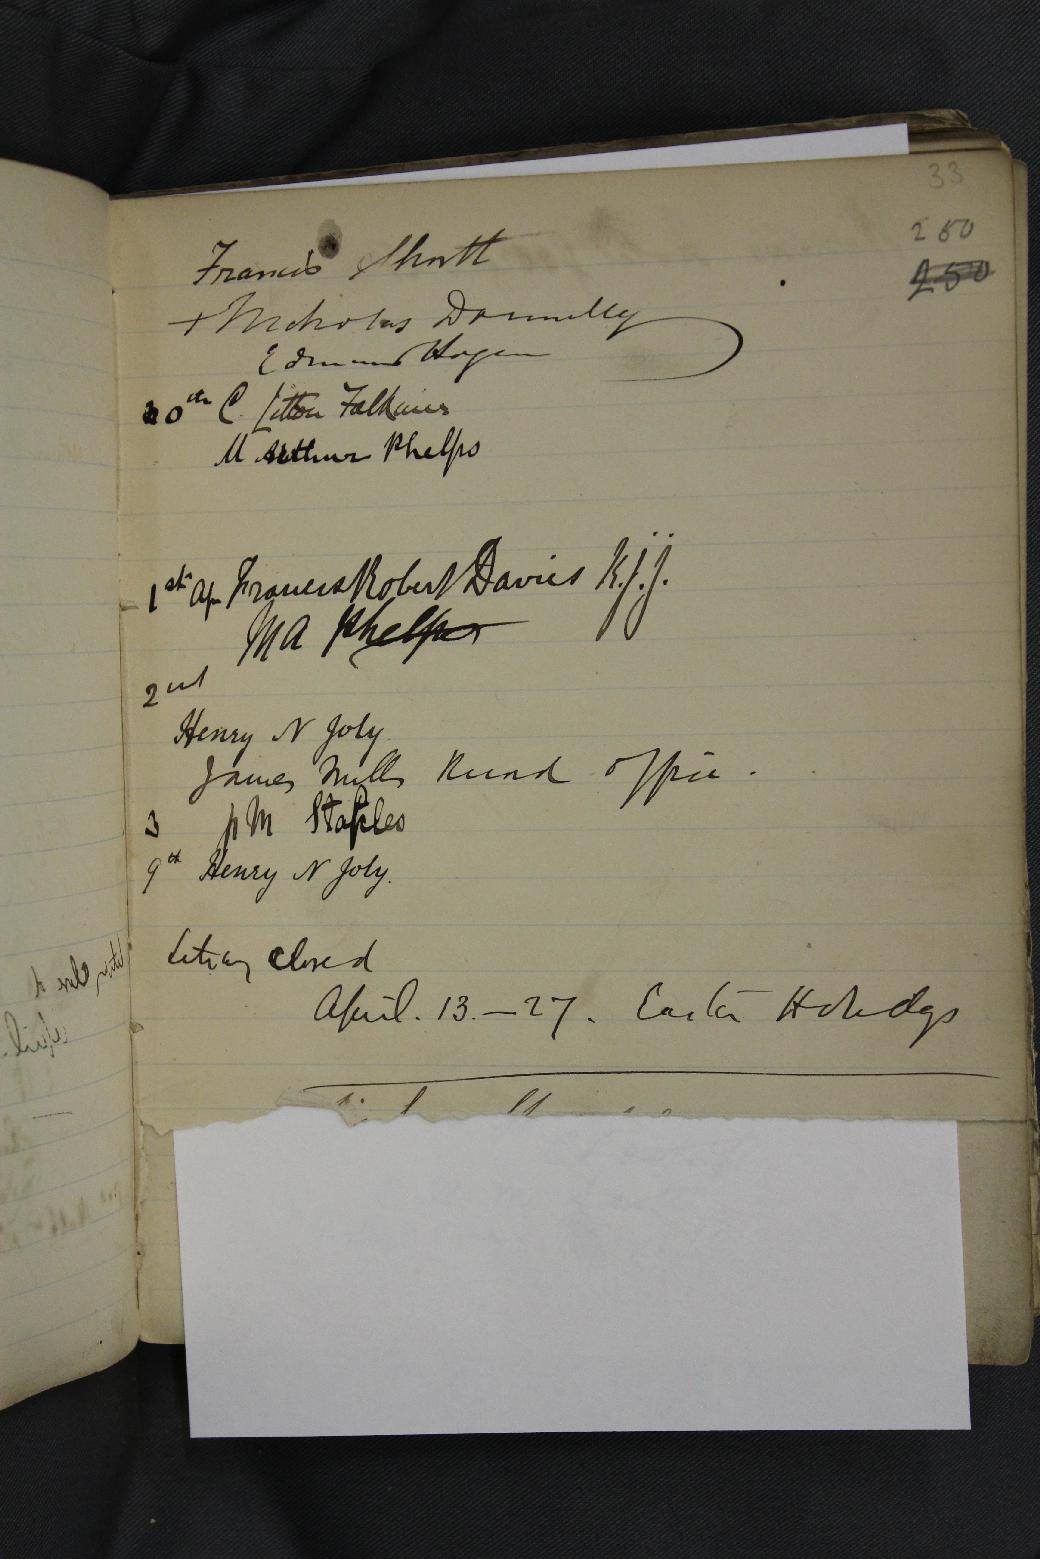 33
250
250
Francis Shortt
+ Nicholas Donnelly
Edmund Hogan
30th C. Litton Falkiner
M Arthur Phelps
1st Ap Francis Robert Davies K.J.J.
M A Phelps
2nd
Henry N Joly.
James Mills Record Office.
3 P M Staples
9th Henry N Joly.
Library closed
April. 13.—27. Easter Holidays